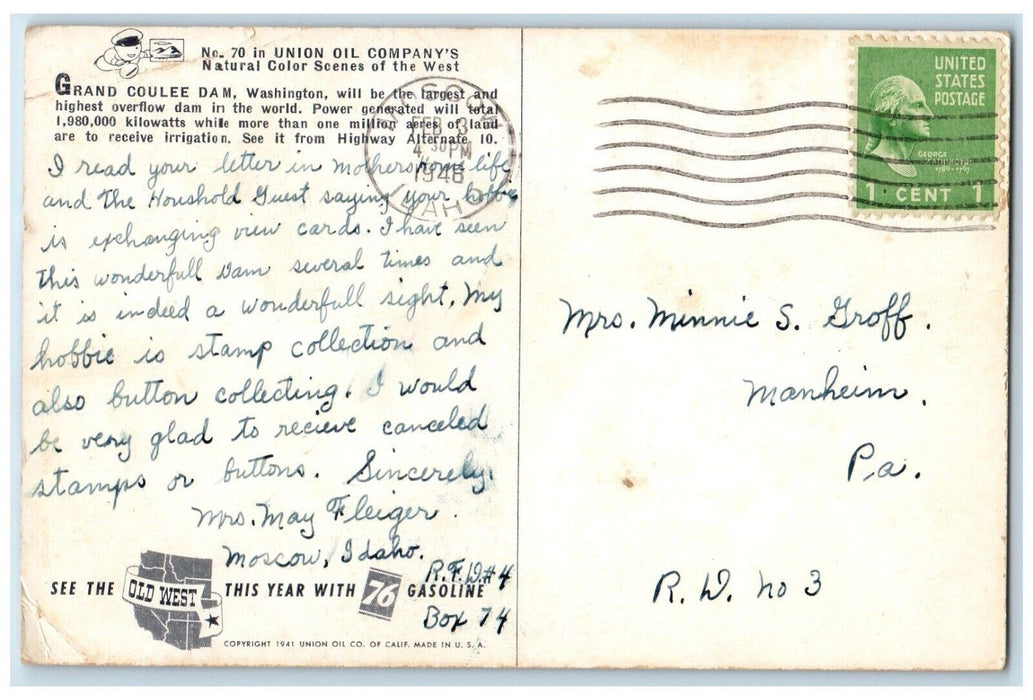 No. 70 in UNION OIL COMPANY'S
Natural Color Scenes of the West
GRAND COULEE DAM, Washington, will be the largest and
highest overflow dam in the world. Power generated will total
1,980,000 kilowatts while more than one million acres of land
are to receive irrigation. See it from Highway Alternate 10.
I read your letter in Mothers home life
and the Houshold Guest saying your hobbie
is exchanging view cards. I have seen
this wonderfull Dam several times and
it is indeed a wonderfull sight. My
hobbie is stamp collection and
also button collecting. I would
be very glad to recieve canceled
stamps or buttons. Sincerely,
Mrs. May Fleiger.
Moscow, Idaho.
R.F.D.#4
Box 74
SEE THE OLD WEST THIS YEAR WITH 76 GASOLINE
COPYRIGHT 1941 UNION OIL CO. OF CALIF. MADE IN U. S. A.
MOSCOW
FEB 3
4 30 PM
1946
IDAHO
UNITED
STATES
POSTAGE
GEORGE
WASHINGTON
1789-1797
1 CENT 1
Mrs. Minnie S. Groff.
Manheim,
Pa.
R. D. no 3